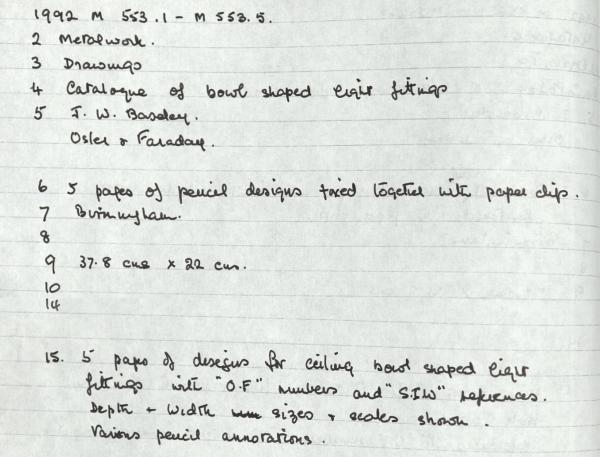 1992 M 553.1 - M 553.5.
2 Metalwork.
3 Drawings
4 Catalogue of bowl shaped light fittings
5 J. W. Baseley.
Osler & Faraday.
6 5 pages of pencil designs fixed together with paper clip.
7 Birmingham.
8
9 37.8 cms x 22 cms.
10
14
15. 5 pages of designs for ceiling bowl shaped light
fittings with "O.F" numbers and "S.I.W" references.
Depth + Width sizes & scales shown.
Various pencil annotations.